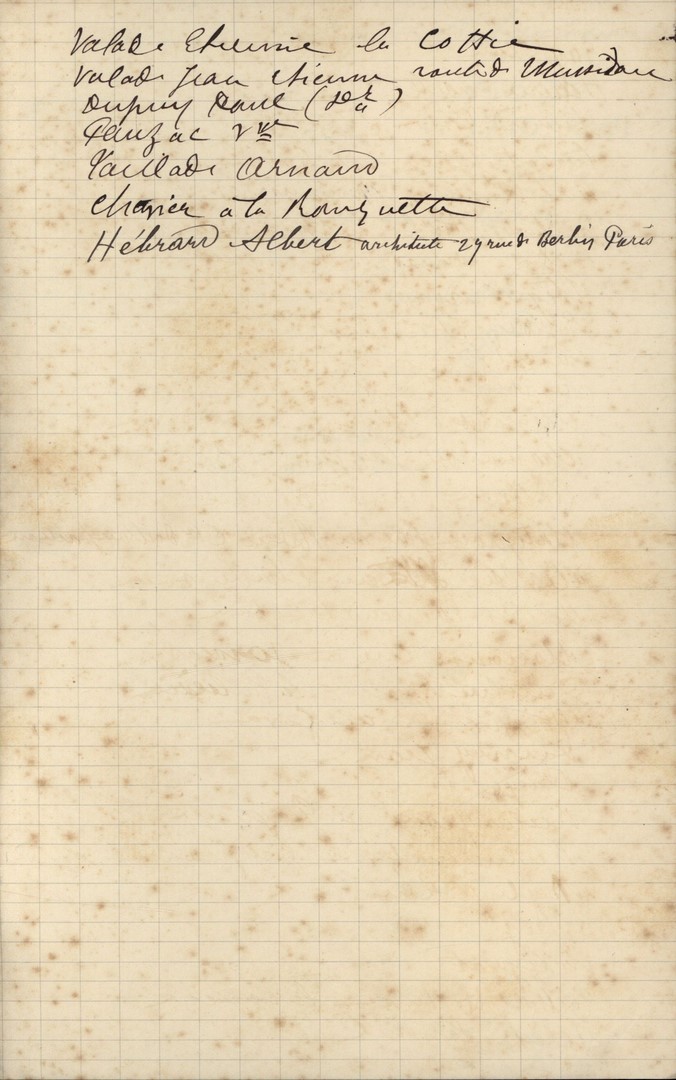 Valade Etienne la Cottie
Valade Jean Etienne route de Mussidan
Dupuy Paul (Dr)
Pauzac Vve
Vaillade Arnaud
Chanier à la Rouquette
Hébrard Albert architecte 29 rue de Berlin Paris